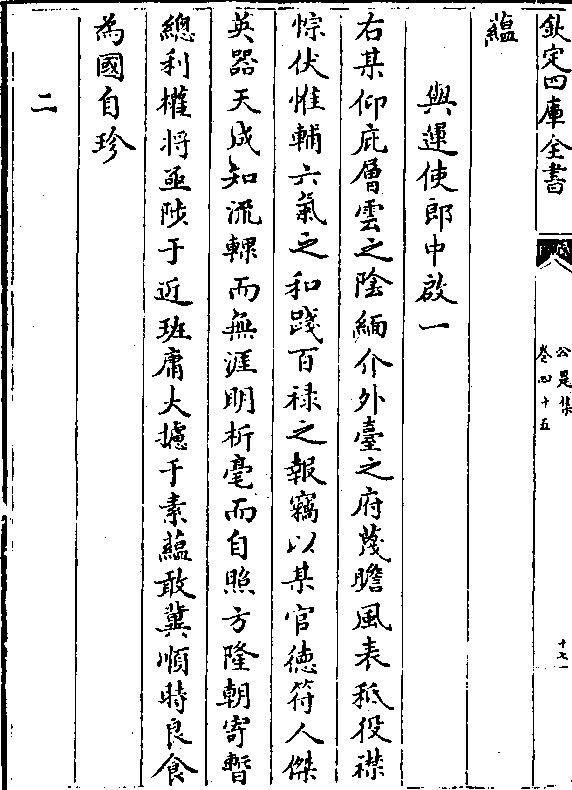 欽定四庫全書
公是集
卷四十五
十七
蘊
與運使郎中啟一
右某仰庇層雲之陰緬介外臺之府茂瞻風表秖役襟
悰伏惟輔六氣之和踐百祿之報竊以某官徳符人傑
英器天成知流輠而無涯明析毫而自照方隆朝寄暫
總利權将亟陟于近班庸大攄于素蘊敢冀順時良食
為國自珍
二